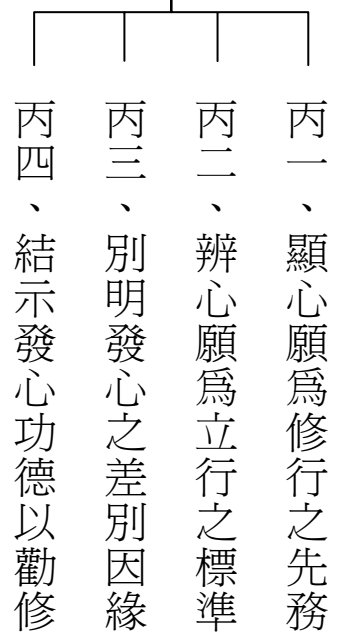 丙一、顯心願爲修行之先務
丙二、辨心願爲立行之標準
丙三、別明發心之差別因緣
丙四、結示發心功德以勸修